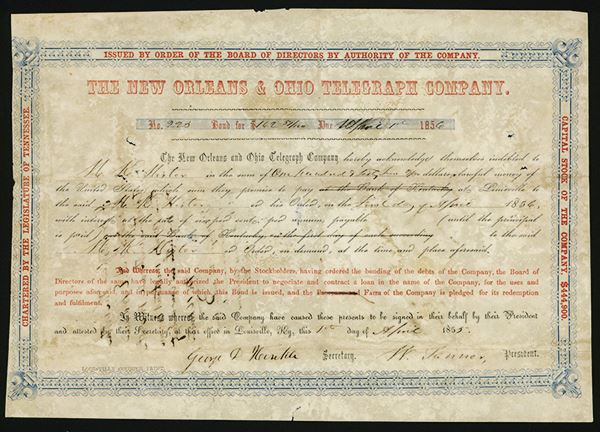 ISSUED BY ORDER OF THE BOARD OF DIRECTORS BY AUTHORITY OF THE COMPANY.
CHARTERED BY THE LEGISLATURE OF TENNESSEE.
CAPITAL STOCK OF THE COMPANY, $444,900.
THE NEW ORLEANS & OHIO TELEGRAPH COMPANY.
No. 225 Bond for $162 Due April 1st 1856
The New Orleans and Ohio Telegraph Company hereby acknowledge themselves indebted to
in the sum of One hundred & sixty two dollars, lawful money of
the United States, which sum they promise to pay at the Bank of Kentucky at Louisville to
the said or his Order, on the first day of April 1856,
with interest at the rate of six per cent. per annum, payable (until the principal
is paid) at the said Bank of Kentucky on the first day of each succeeding to the said
or Order, on demand, at the time and place aforesaid.
And Whereas, the said Company, by the Stockholders, having ordered the bonding of the debts of the Company, the Board of
Directors of the same have legally authorized the President to negotiate and contract a loan in the name of the Company, for the uses and
purposes aforesaid, and in pursuance of which this Bond is issued, and the Faith of the Company is pledged for its redemption
and fulfilment.
In Witness whereof, the said Company have caused these presents to be signed in their behalf by their President
and attested by their Secretary, at their office in Louisville, Ky, this 1st day of April 1855.
George L Secretary. W. Tanner, President.
LOUISVILLE COURIER PRINT.